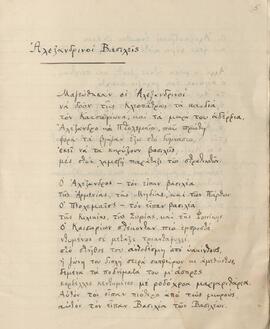 Ἀλεξανδρινοὶ Βασιλεῖς
Μαζεύθηκαν οἱ Ἀλεξανδρινοὶ
νὰ δοῦν τῆς Κλεοπάτρας τὰ παιδιά
τὸν Καισαρίωνα, καὶ τὰ μικρά του ἀδέρφια,
Ἀλέξανδρο καὶ Πτολεμαῖο, ποὺ πρώτη
φορὰ τὰ βγάζαν ἔξω στὸ Γυμνάσιο,
ἐκεῖ νὰ τὰ κηρύξουν βασιλεῖς
μὲς στὴ λαμπρὴ παράταξι τῶν στρατιωτῶν.
Ὁ Ἀλέξανδρος — τὸν εἶπαν βασιλέα
τῆς Ἀρμενίας, τῆς Μηδίας, καὶ τῶν Πάρθων.
Ὁ Πτολεμαῖος — τὸν εἶπαν βασιλέα
τῆς Κιλικίας, τῆς Συρίας, καὶ τῆς Φοινίκης.
Ὁ Καισαρίων στέκονταν πιὸ ἐμπροστά,
ντυμένος σὲ μετάξι τριανταφυλλί,
στὸ στῆθος του ἀνθοδέσμη ἀπὸ ὑακίνθους,
ἡ ζώνη του διπλὴ σειρὰ σαπφείρων κι ἀμεθύστων,
δεμένα τὰ ποδήματά του μ' ἄσπρες
κορδέλλες κεντημένες μὲ ροδόχροα μαργαριτάρια.
Αὐτὸν τὸν εἶπαν πιότερο ἀπὸ τοὺς μικρούς,
αὐτὸν τὸν εἶπαν Βασιλέα τῶν Βασιλέων.